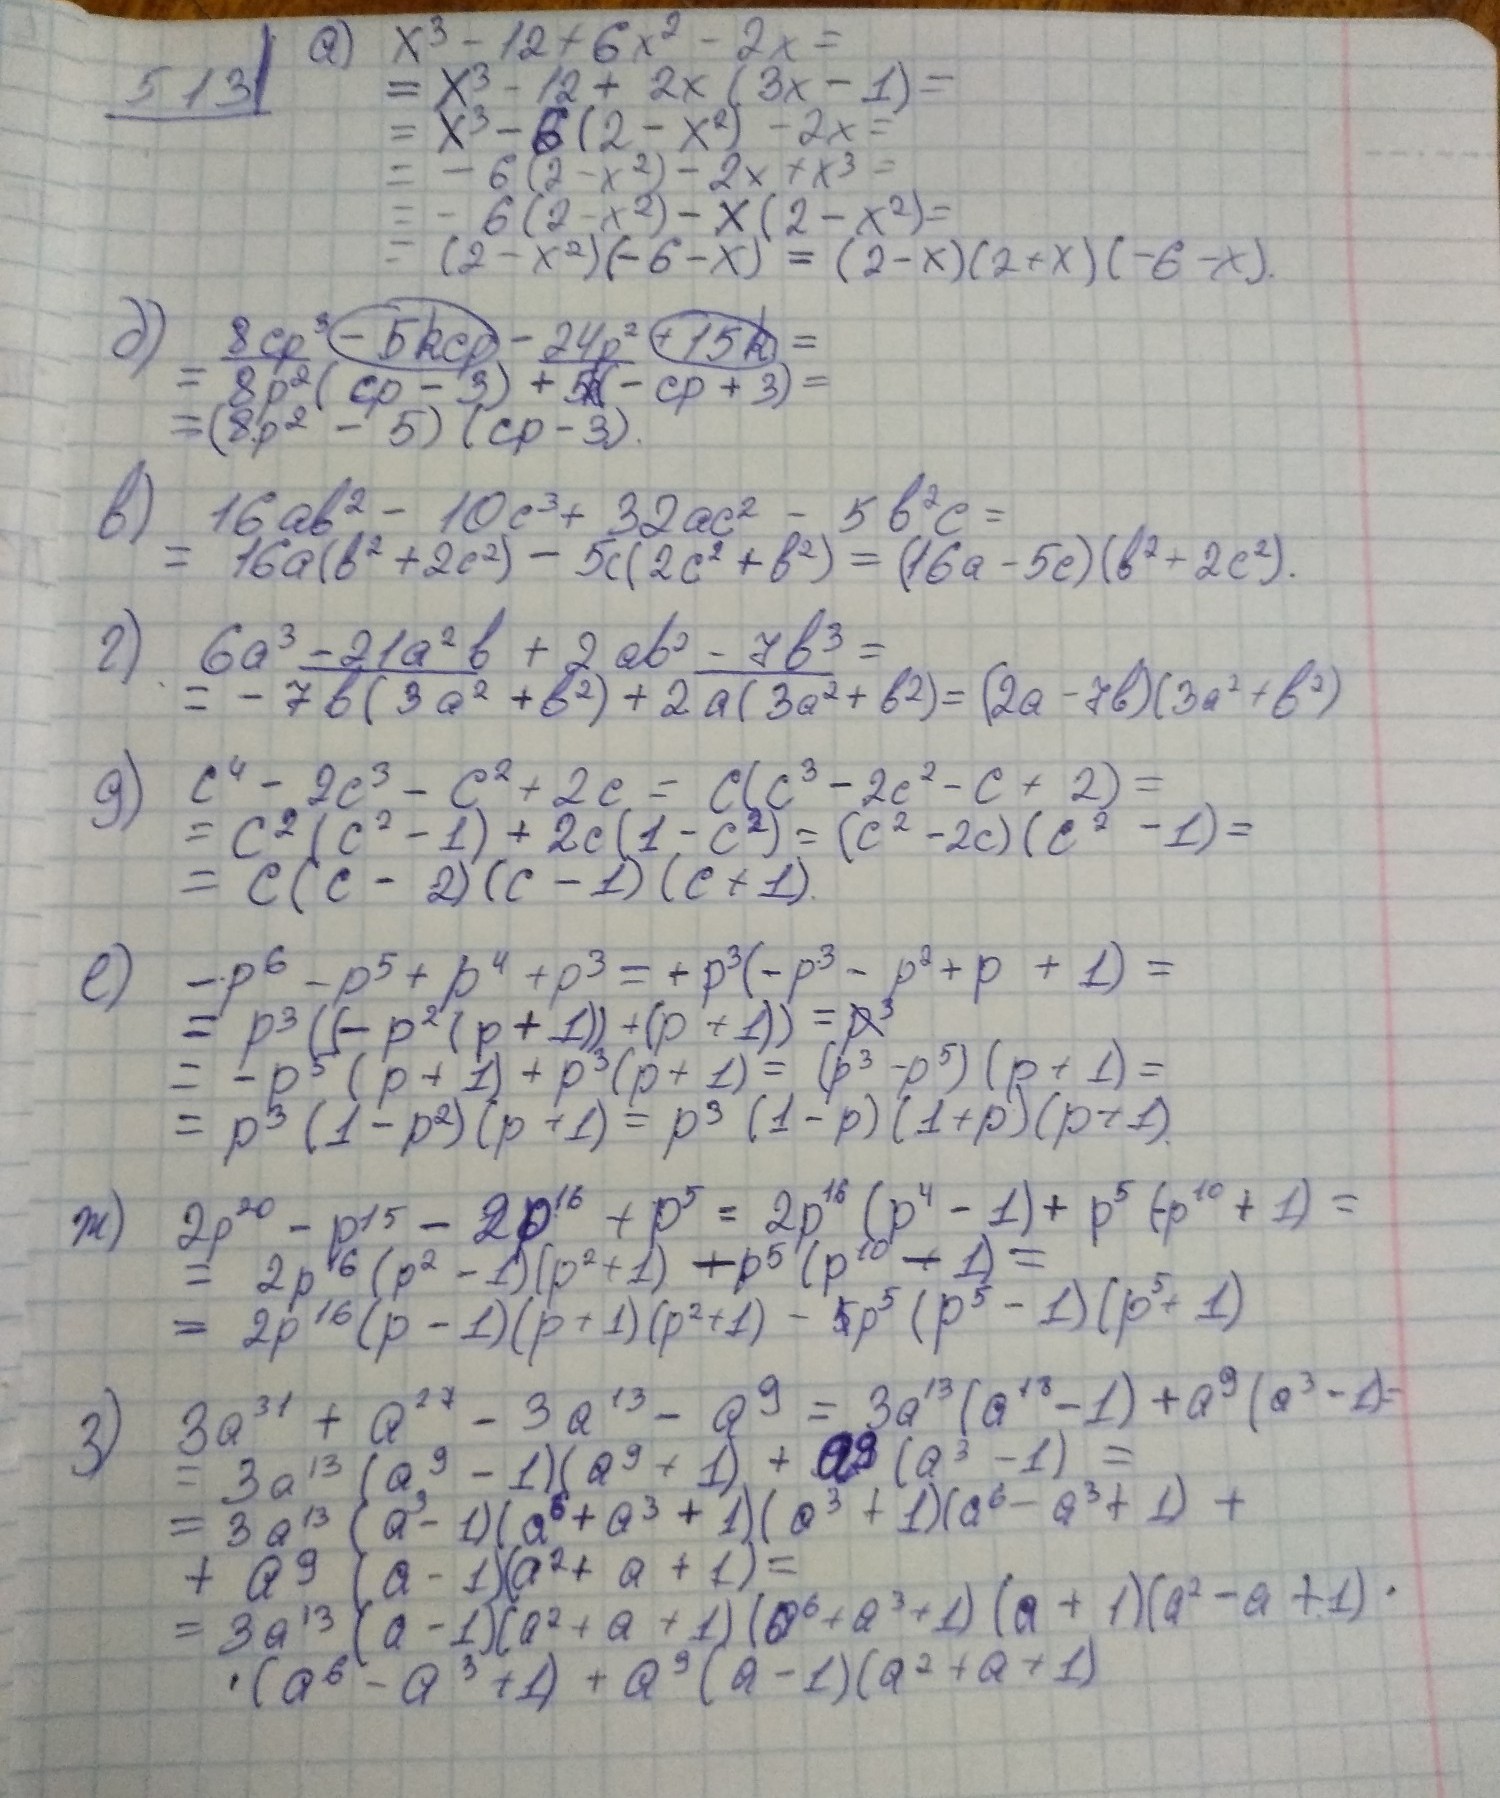 513
а) x³ - 12 + 6x² - 2x =
= x³ - 12 + 2x (3x - 1) =
= x³ - 6 (2 - x²) - 2x =
= - 6 (2 - x²) - 2x + x³ =
= - 6 (2 - x²) - x (2 - x²) =
= (2 - x²)(-6 - x) = (2 - x)(2 + x)(-6 - x).
б) 8cp³ - 5kcp - 24p² + 15k =
= 8p² (cp - 3) + 5k(- cp + 3) =
= (8p² - 5) (cp - 3).
в) 16ab² - 10c³ + 32ac² - 5b²c =
= 16a(b² + 2c²) - 5c(2c² + b²) = (16a - 5c)(b² + 2c²).
г) 6a³ - 21a²b + 2ab² - 7b³ =
= - 7b(3a² + b²) + 2a(3a² + b²) = (2a - 7b)(3a² + b²)
д) c⁴ - 2c³ - c² + 2c = c(c³ - 2c² - c + 2) =
= c² (c² - 1) + 2c(1 - c²) = (c² - 2c)(c² - 1) =
= c(c - 2)(c - 1)(c + 1).
е) -p⁶ - p⁵ + p⁴ + p³ = + p³(-p³ - p² + p + 1) =
= p³ ((- p² (p + 1)) + (p + 1)) =
= - p⁵ (p + 1) + p³(p + 1) = (p³ - p⁵)(p + 1) =
= p³ (1 - p²)(p + 1) = p³ (1 - p)(1 + p)(p + 1).
ж) 2p²⁰ - p¹⁵ - 2p¹⁶ + p⁵ = 2p¹⁶ (p⁴ - 1) + p⁵ (-p¹⁰ + 1) =
= 2p¹⁶ (p² - 1)(p² + 1) - p⁵ (p¹⁰ - 1) =
= 2p¹⁶ (p - 1)(p + 1)(p² + 1) - p⁵ (p⁵ - 1)(p⁵ + 1)
з) 3a³¹ + a²⁷ - 3a¹³ - a⁹ = 3a¹³ (a¹⁸ - 1) + a⁹ (a³ - 1) =
= 3a¹³ (a⁹ - 1)(a⁹ + 1) + a⁹ (a³ - 1) =
= 3a¹³ (a³ - 1)(a⁶ + a³ + 1)(a³ + 1)(a⁶ - a³ + 1) +
+ a⁹ (a - 1)(a² + a + 1) =
= 3a¹³ (a - 1)(a² + a + 1)(a⁶ + a³ + 1)(a + 1)(a² - a + 1) ·
· (a⁶ - a³ + 1) + a⁹ (a - 1)(a² + a + 1)